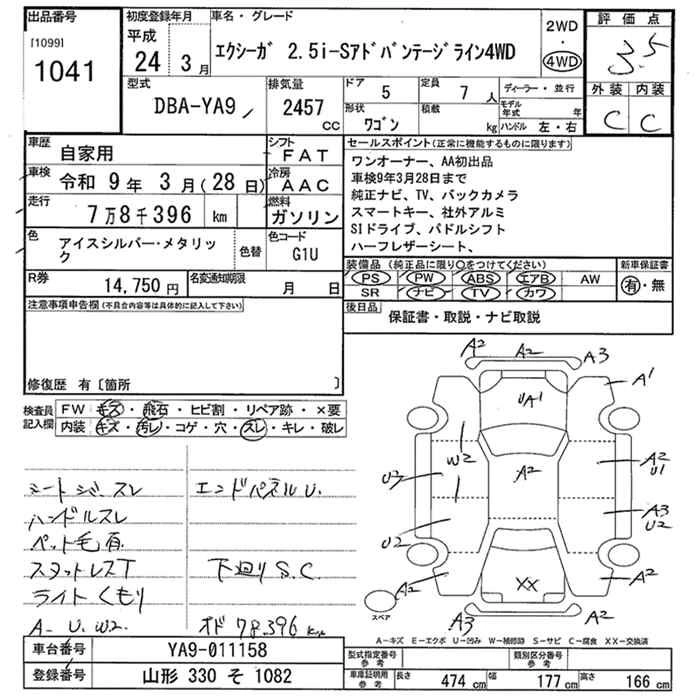 出品番号
[1099]
1041
初度登録年月
平成
24 3月
車名・グレード
エクシーガ 2.5i-Sアドバンテージライン4WD
2WD
・
4WD
評価点
3.5
外装 内装
C C
型式
DBA-YA9
排気量
2457
cc
ドア
5
定員
7人
形状
ワゴン
積載
kg
ディーラー・並行
モデル年式 年
ハンドル 左・右
車歴
自家用
シフト
FAT
車検
令和 9年 3月(28日)
冷房
AAC
走行
7万8千396 km
燃料
ガソリン
色
アイスシルバー・メタリック
色替
色コード
G1U
R券
14,750円
名変通知期限
月 日
セールスポイント(正常に機能するものに限ります)
ワンオーナー、AA初出品
車検9年3月28日まで
純正ナビ、TV、バックカメラ
スマートキー、社外アルミ
SIドライブ、パドルシフト
ハーフレザーシート、
装備品(純正品に限り○をつけてください)
PS PW ABS エアB AW
SR ナビ TV カワ
新車保証書
有・無
後日品
保証書・取説・ナビ取説
注意事項申告欄(不具合内容等は具体的に記入して下さい)
修復歴 有〔箇所 〕
検査員記入欄
FW キズ・飛石・ヒビ割・リペア跡・×要
内装 キズ・汚レ・コゲ・穴・スレ・キレ・破レ
ハンドルスレ
ペット毛有
スタットレスT
ライトくもり
A- U. W2
エンドパネルU.
下廻りS.C.
オド 78396 km
A2 A2 A3
A1
UA1
W2
A2
A2
U1
U2
A3
U2
U2
A2
A2
XX
A3
A2
スペア
A-キズ E-エクボ U-凹み W-補修跡 S-サビ C-腐食 XX-交換済
車台番号
YA9-011158
登録番号
山形 330 そ 1082
型式指定番号
参考
類別区分番号
参考
車庫証明用
参考
長さ 474 cm
幅 177 cm
高さ 166 cm